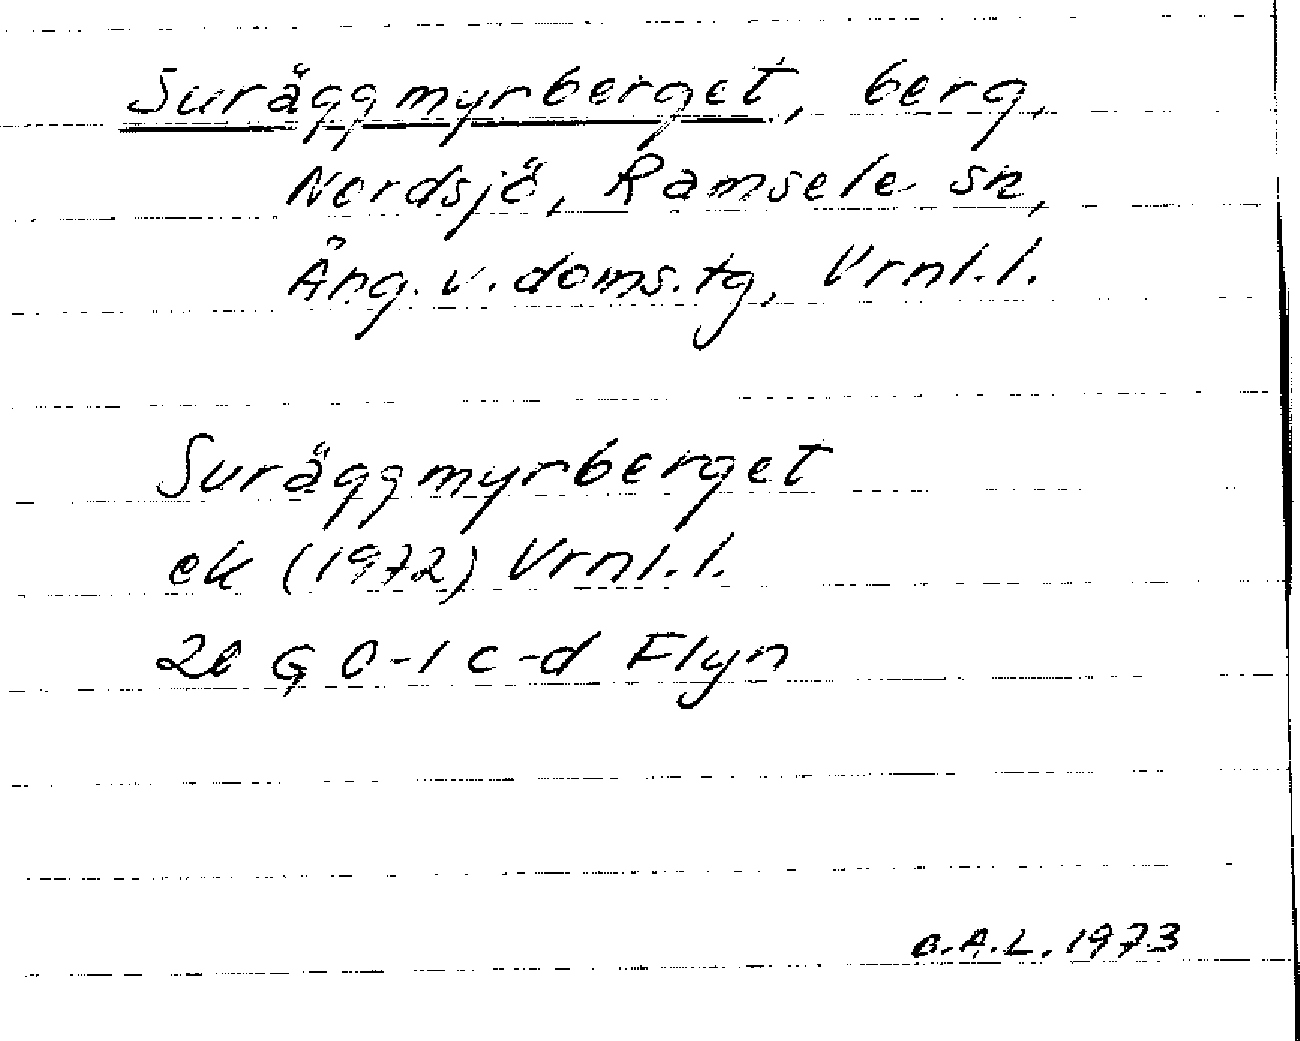 Suräggmyrberget, berg,
Nordsjö, Ramsele sn,
Ång. v. doms. tg, Vrnl. l.
Suräggmyrberget
ek (1972) Vrnl. l.
20 G 0-1 c-d Flyn
C.A.L. 1973